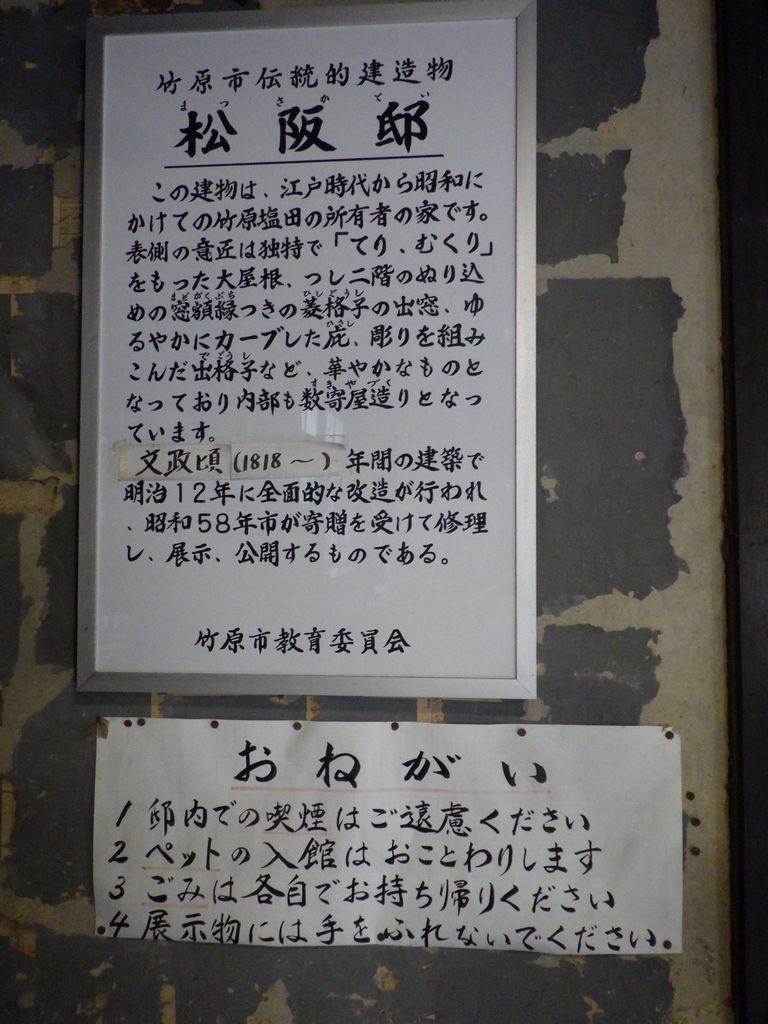 竹原市伝統的建造物
まつ さか てい
松阪邸
この建物は、江戸時代から昭和に
かけての竹原塩田の所有者の家です。
表側の意匠は独特で「てり、むくり」
をもった大屋根、つし二階のぬり込
まどがくぶち ひしごうし
めの窓額縁つきの菱格子の出窓、ゆ
ひさし
るやかにカーブした庇、彫りを組み
でごうし
こんだ出格子など、華やかなものと
すきやづく
なっており内部も数寄屋造りとなっ
ています。
文政頃(1818～)年間の建築で
明治12年に全面的な改造が行われ
、昭和58年市が寄贈を受けて修理
し、展示、公開するものである。
竹原市教育委員会
おねがい
1 邸内での喫煙はご遠慮ください
2 ペットの入館はおことわりします
3 ごみは各自でお持ち帰りください
4 展示物には手をふれないでください。